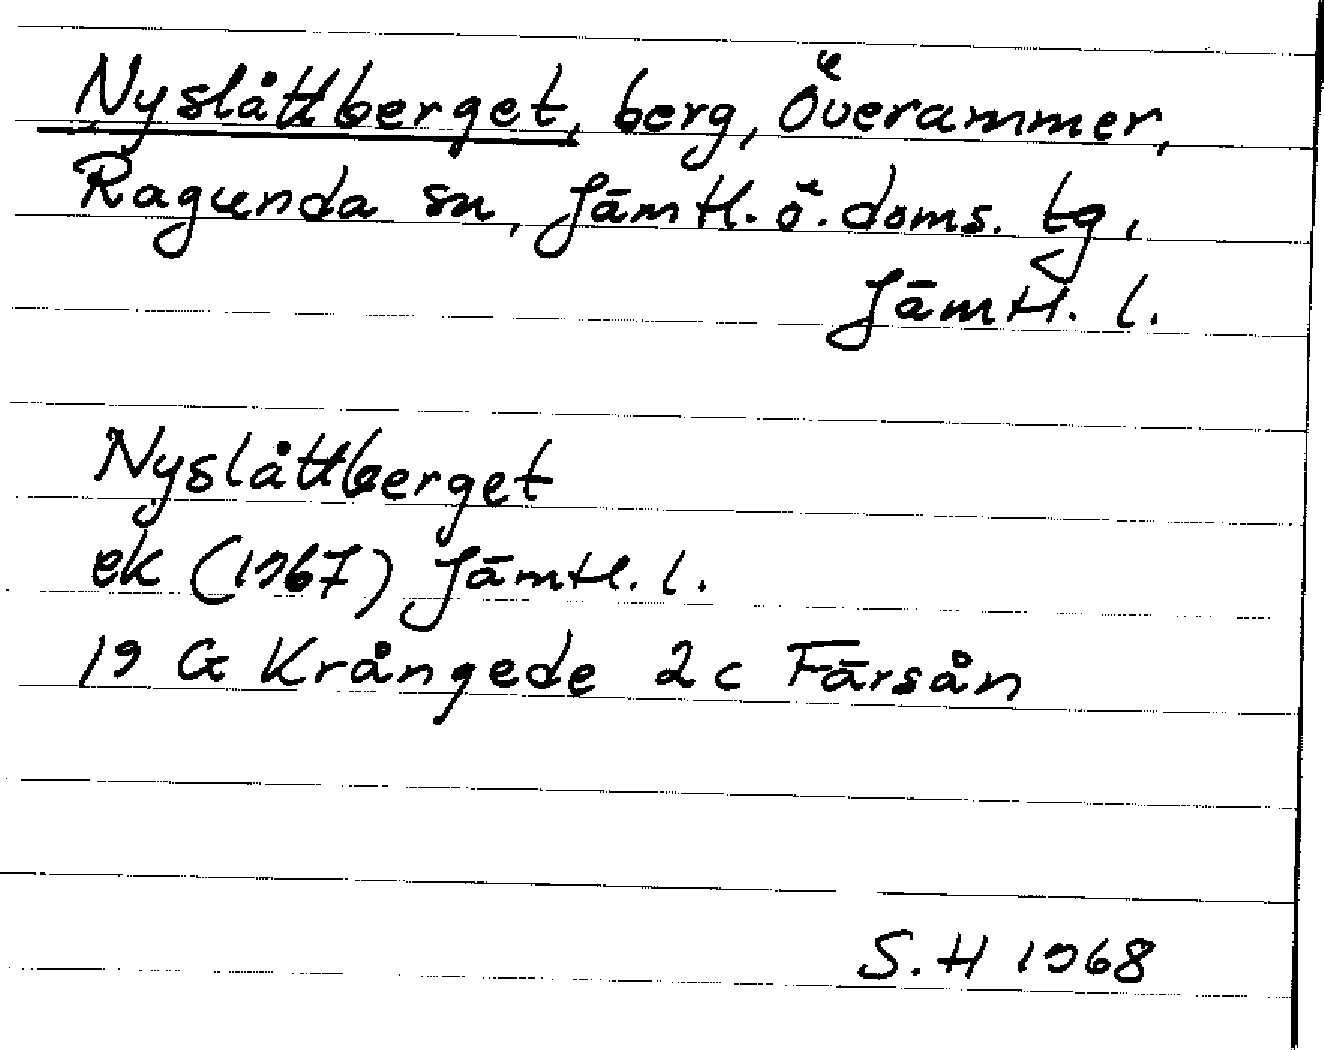 Nyslåttberget, berg, Överammer,
Ragunda sn, Jämtl. ö. doms. tg,
Jämtl. l.
Nyslåttberget
ek (1967) Jämtl. l.
19 G Krångede 2c Färsån
S.H 1968